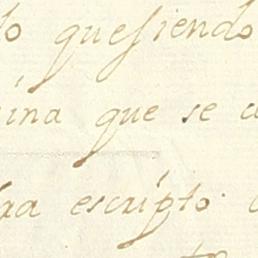 lo quesiendo
ina que se a
aa escripto